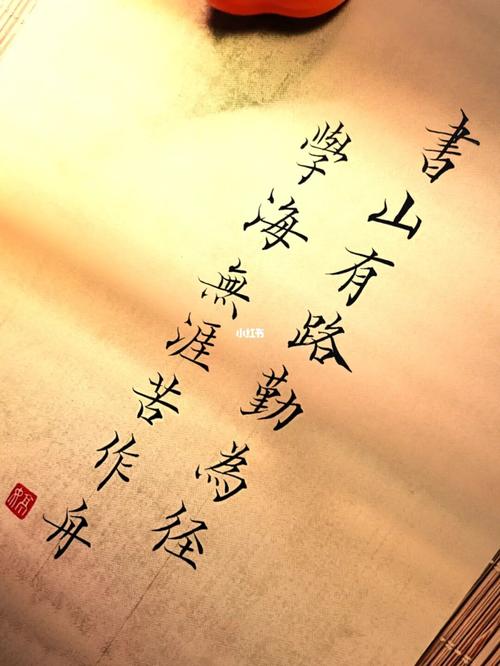 書山有路勤為径
學海無涯苦作舟
小红书